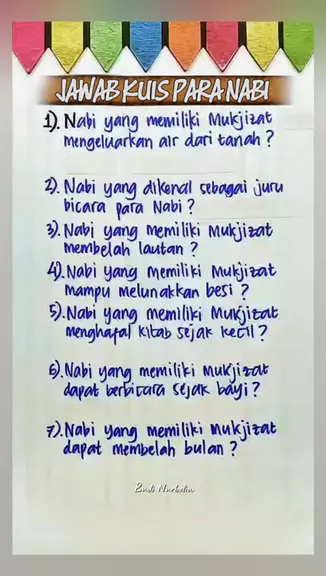 JAWAB KUIS PARA NABI
1). Nabi yang memiliki Mukjizat
mengeluarkan air dari tanah ?
2). Nabi yang dikenal sebagai juru
bicara para Nabi ?
3). Nabi yang memiliki Mukjizat
membelah lautan ?
4). Nabi yang memiliki Mukjizat
mampu melunakkan besi ?
5). Nabi yang memiliki Mukjizat
menghafal kitab sejak kecil ?
6). Nabi yang memiliki Mukjizat
dapat berbicara sejak bayi ?
7). Nabi yang memiliki Mukjizat
dapat membelah bulan ?